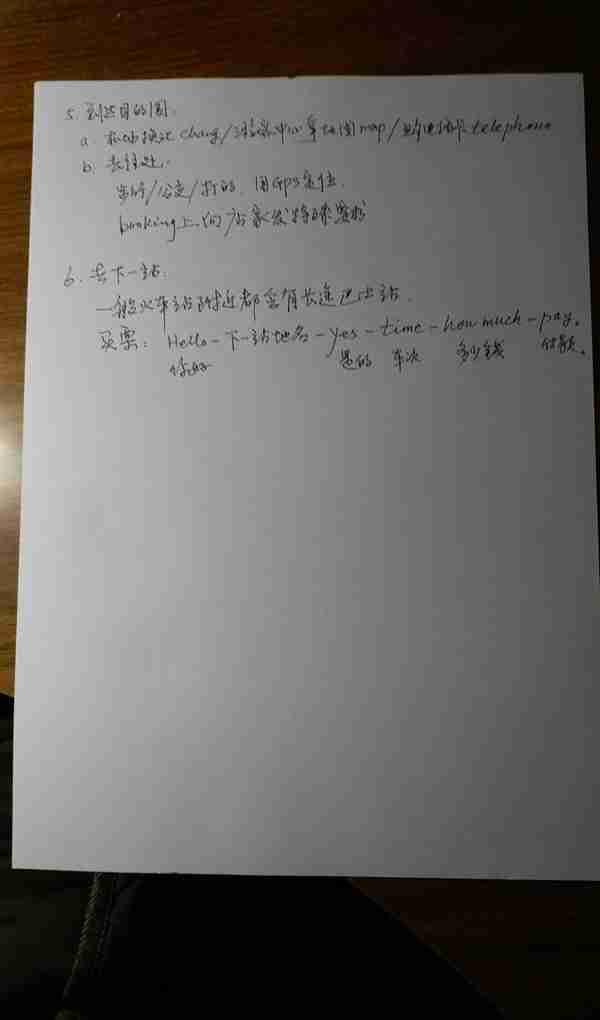 5. 到达目的国.
a. 机场换汇 chang/游客中心拿地图map/购电话卡telephone
b. 去住处.
步行/公交/打的. 用GPS定位.
booking上的店家
6. 去下一站.
一般火车站附近都会有长途巴士站.
买票: Hello-下一站地名-yes-time-how much-pay.
你好 是的 车次 多少钱 付款.